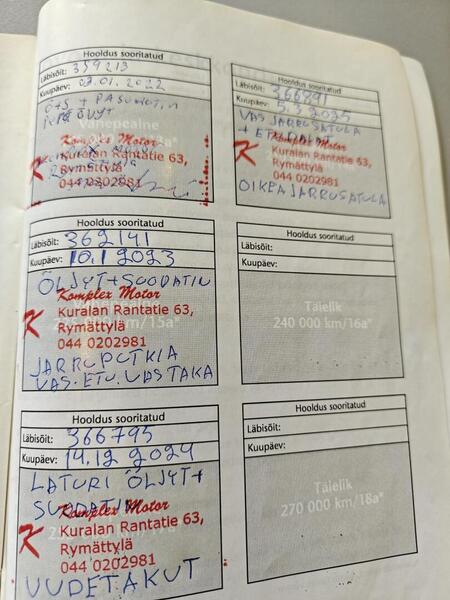 Hooldus sooritatud
Läbisõit: 359213
Kuupäev: 03.01.2022
Ö+S +
Vahepealne
Komplex Motor
Kuralan Rantatie 63,
Rymättylä
044 0202981
Hooldus sooritatud
Läbisõit: 362141
Kuupäev: 10.1 2023
ÖLJYT+SUODATIN
Komplex Motor
Kuralan Rantatie 63,
Rymättylä
044 0202981
JARRUPUTKIA
VAS. ETU. VASTAKA
Hooldus sooritatud
Läbisõit: 366795
Kuupäev: 14.12 2024
LATURI ÖLJYT+
SUODATIN
Komplex Motor
Kuralan Rantatie 63,
Rymättylä
044 0202981
UUDET AKUT
Hooldus sooritatud
Läbisõit: 366891
Kuupäev: 5.3 2025
VAS JARRUSATULA
Komplex Motor
Kuralan Rantatie 63,
Rymättylä
044 0202981
OIKEA JARRUSATULA
Hooldus sooritatud
Läbisõit:
Kuupäev:
Täielik
240 000 km/16a*
Hooldus sooritatud
Läbisõit:
Kuupäev:
Täielik
270 000 km/18a*